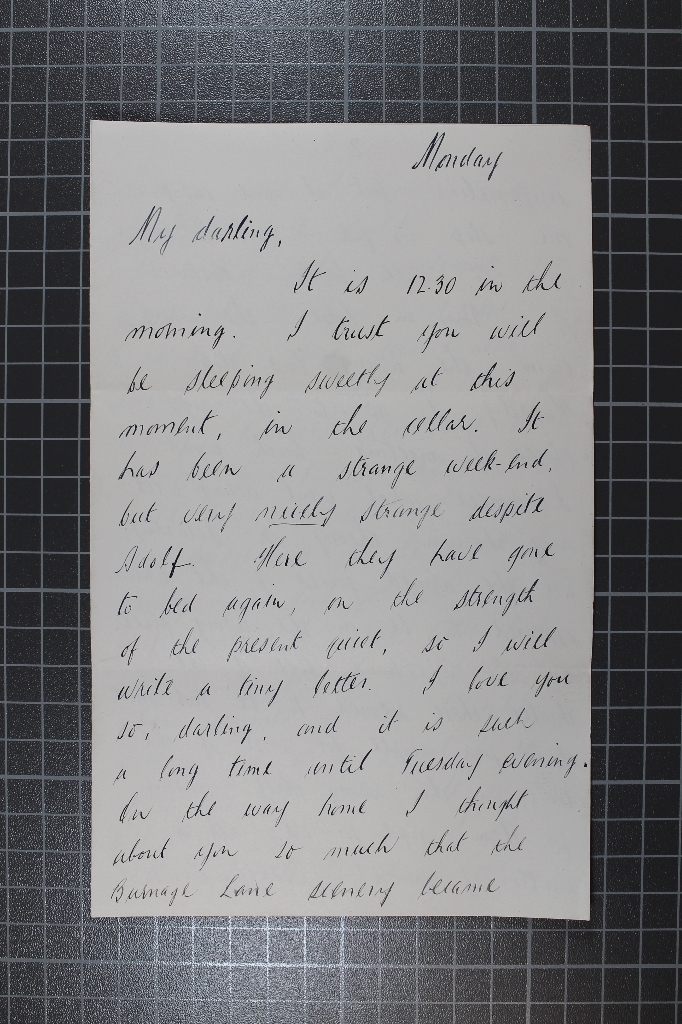 Monday
My darling,
It is 12.30 in the
morning. I trust you will
be sleeping sweetly at this
moment, in the cellar. It
has been a strange week-end,
but very nicely strange despite
Adolf. Here they have gone
to bed again, on the strength
of the present quiet, so I will
write a tiny letter. I love you
so, darling, and it is such
a long time until Tuesday evening.
On the way home I thought
about you so much that the
Burnage Lane scenery became